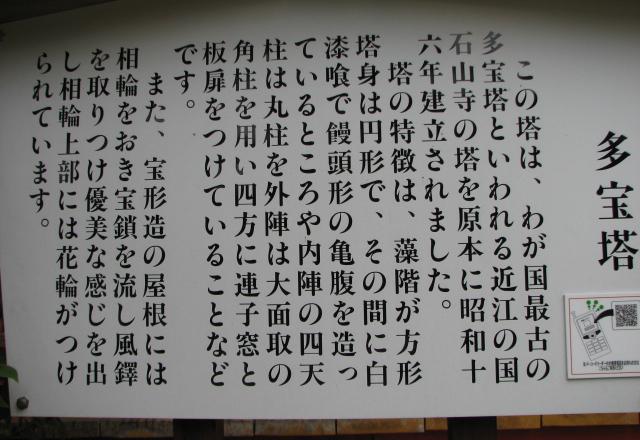 多宝塔
この塔は、わが国最古の
多宝塔といわれる近江の国
石山寺の塔を原本に昭和十
六年建立されました。
塔の特徴は、藻階が方形
塔身は円形で、その間に白
漆喰で饅頭形の亀腹を造っ
ているところや内陣の四天
柱は丸柱を外陣は大面取の
角柱を用い四方に連子窓と
板扉をつけていることなど
です。
また、宝形造の屋根には
相輪をおき宝鎖を流し風鐸
を取りつけ優美な感じを出
し相輪上部には花輪がつけ
られています。